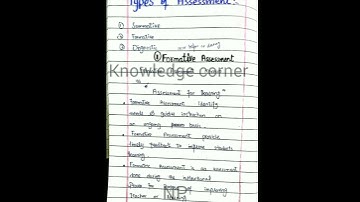 Types of Assessment:-
① Summative
② Formative
③ Diagnostic
① Formative Assessment
Knowledge corner
"Assessment for learning"
• Formative Assessment identify
needs & guide instruction on
an ongoing basis.
• Formative Assessment provide
timely feedback to improve students
learning.
• Formative Assessment is an assessment
done during the instructional
process for improving
teacher or learning
NP